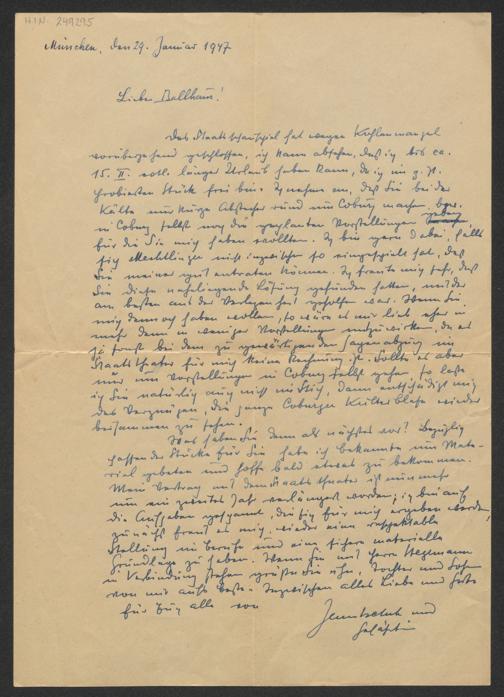 H.I.N. 249295
München, den 29. Januar 1947
Lieber Ballhaus!
Das Staatsschauspiel hat wegen Kohlenmangel
vorübergehend geschlossen, ich kann absehen, daß ich bis ca.
15. II. evtl. länger Urlaub haben kann, da ich im z. Zt.
probierten Stück frei bin. Ich nehme an, daß Sie bei der
Kälte nur kurze Abstecher rund um Coburg machen, bzw.
in Coburg selbst noch die geplanten Vorstellungen geben
für die Sie mich haben wollten. Ich bin gern dabei, falls
sich nicht inzwischen so eingespielt hat, daß
Sie meiner gut entraten können. Ich freute mich sehr, daß
Sie diese naheliegende Lösung gefunden hatten, mit der
am besten aus der Verlegenheit geholfen war. Wenn Sie
mich dennoch haben wollen, so wäre es mir lieb eher in
mehr denn in weniger Vorstellungen mitzuwirken, da es
ja sonst bei dem zu gewärtigenden Gagenabzug im
Staatstheater für mich keine Rechnung ist. Sollte es aber
nur um Vorstellungen in Coburg selbst gehen, so lasse
ich Sie natürlich auch nicht im Stich, dann entschädigt mich
das Vergnügen, die ganze Coburger wieder
beisammen zu sehen.
Was haben Sie denn als nächstes vor? Bezüglich
passender Stücke für Sie habe ich bekannte um Mate-
rial gebeten und hoffe bald etwas zu bekommen.
Mein Vertrag mit dem Staatstheater ist nunmehr
um ein zweites Jahr verlängert worden; ich bin auf
die Aufgaben gespannt, die sich für mich ergeben werden,
zunächst freut es mich, wieder eine respektable
Stellung im Berufe und eine sichere materielle
Grundlage zu haben. Wenn Sie mit Herrn Stegmann
in Verbindung stehen grüßen Sie ihn, Tochter und Sohn
von mir aufs beste. Inzwischen alles Liebe und Gute
für Euch alle von
und